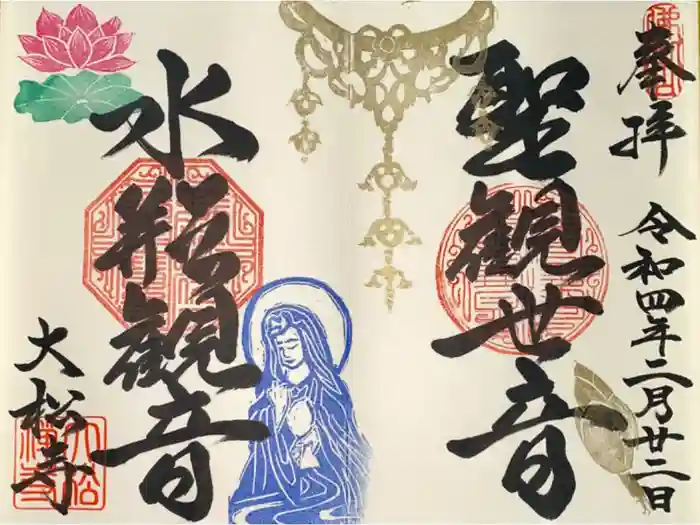 奉拝
令和四年二月廿二日
聖観世音
水瓶観音
大松寺